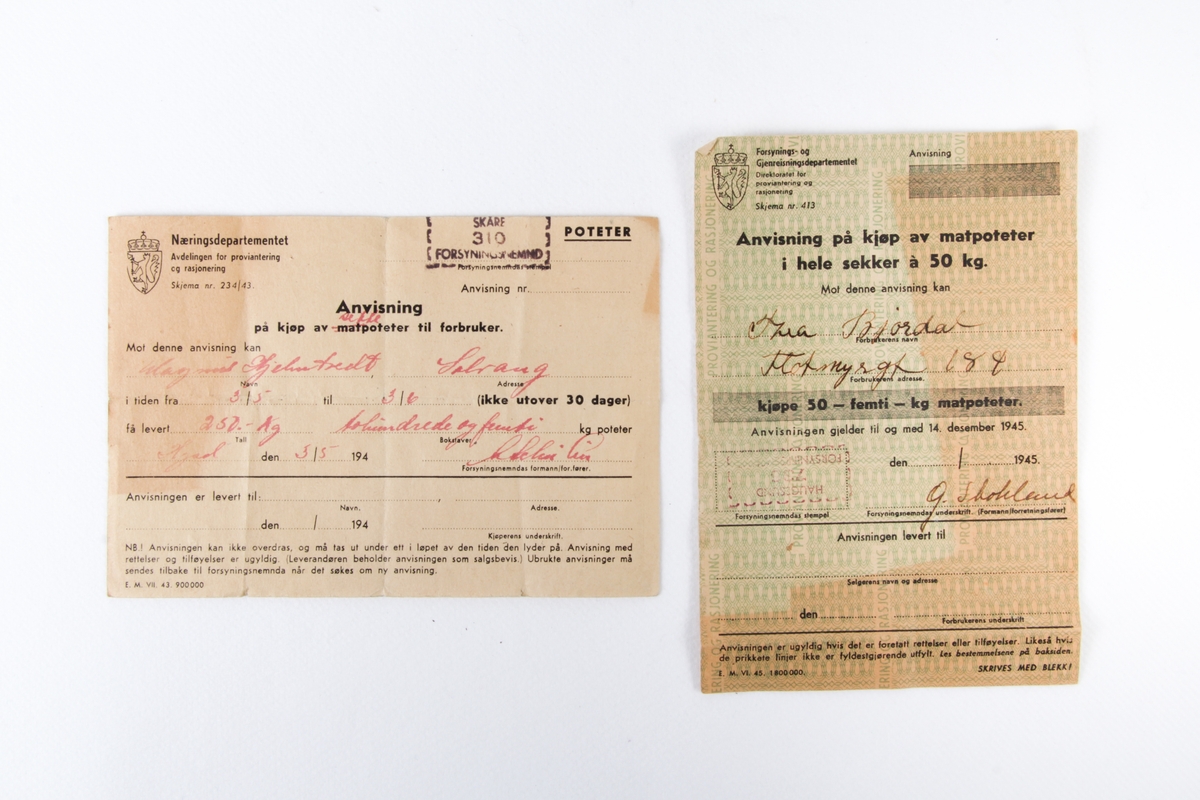 Næringsdepartementet
Avdelingen for proviantering
og rasjonering
Skjema nr. 234/43.
SKÅRE
310
FORSYNINGSNEMND
Forsyningsnemndas stempel
POTETER
Anvisning nr.
Anvisning
sette
på kjøp av matpoteter til forbruker.
Mot denne anvisning kan
Magnus Solvang
Navn Adresse
i tiden fra 3/5 til 3/6 (ikke utover 30 dager)
få levert 250.- Kg tohundrede og femti kg poteter
Tall Bokstaver
den 3/5 194
Forsyningsnemndas formann/for.fører.
Anvisningen er levert til:
Navn. Adresse.
den / 194
Kjøperens underskrift.
NB.! Anvisningen kan ikke overdras, og må tas ut under ett i løpet av den tiden den lyder på. Anvisning med
rettelser og tilføyelser er ugyldig. (Leverandøren beholder anvisningen som salgsbevis.) Ubrukte anvisninger må
sendes tilbake til forsyningsnemnda når det søkes om ny anvisning.
E. M. VII. 43. 900 000
Forsynings- og
Gjenreisningsdepartementet
Direktoratet for
proviantering og
rasjonering
Skjema nr. 413
Anvisning
Anvisning på kjøp av matpoteter
i hele sekker à 50 kg.
Mot denne anvisning kan
Thea Bjørdal
Forbrukerens navn
Flotmyrgt 68
Forbrukerens adresse.
kjøpe 50 – femti – kg matpoteter.
Anvisningen gjelder til og med 14. desember 1945.
den / 1945.
HAUGESUND
FORSYNINGSNEMND
G. Stokland
Forsyningsnemndas stempel
Forsyningsnemndas underskrift. (Formann/forretningsfører)
Anvisningen levert til
Selgerens navn og adresse
den
Forbrukerens underskrift
Anvisningen er ugyldig hvis det er foretatt rettelser eller tilføyelser. Likeså hvis
de prikkete linjer ikke er fyldestgjørende utfylt. Les bestemmelsene på baksiden.
E. M. VI. 45. 1 800 000.
SKRIVES MED BLEKK!
PROVIANTERING OG RASJONERING